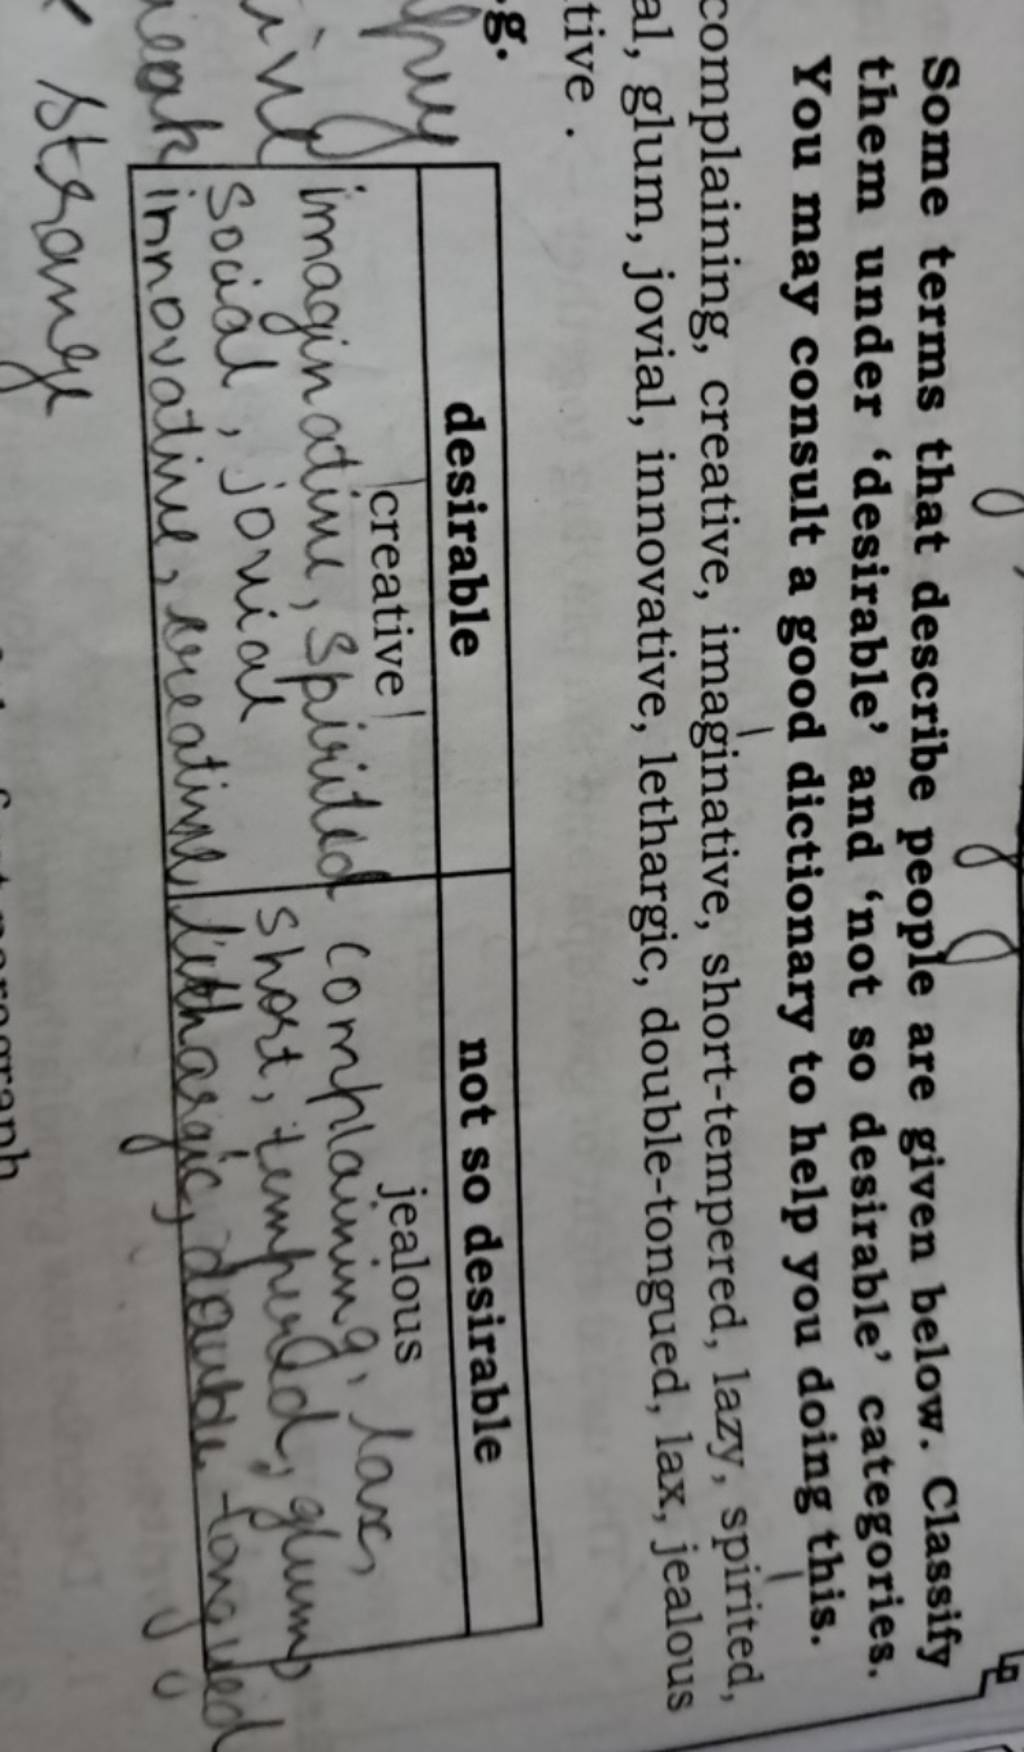 Some terms that describe people are given below. Classify
them under ‘desirable’ and ‘not so desirable’ categories.
You may consult a good dictionary to help you doing this.
complaining, creative, imaginative, short-tempered, lazy, spirited,
al, glum, jovial, innovative, lethargic, double-tongued, lax, jealous
tive .
g.
desirable not so desirable
creative jealous
imaginative, spirited complaining, lax,
social, jovial short, tempered, glum,
innovative, creative, lethargic, double-tongued
strange